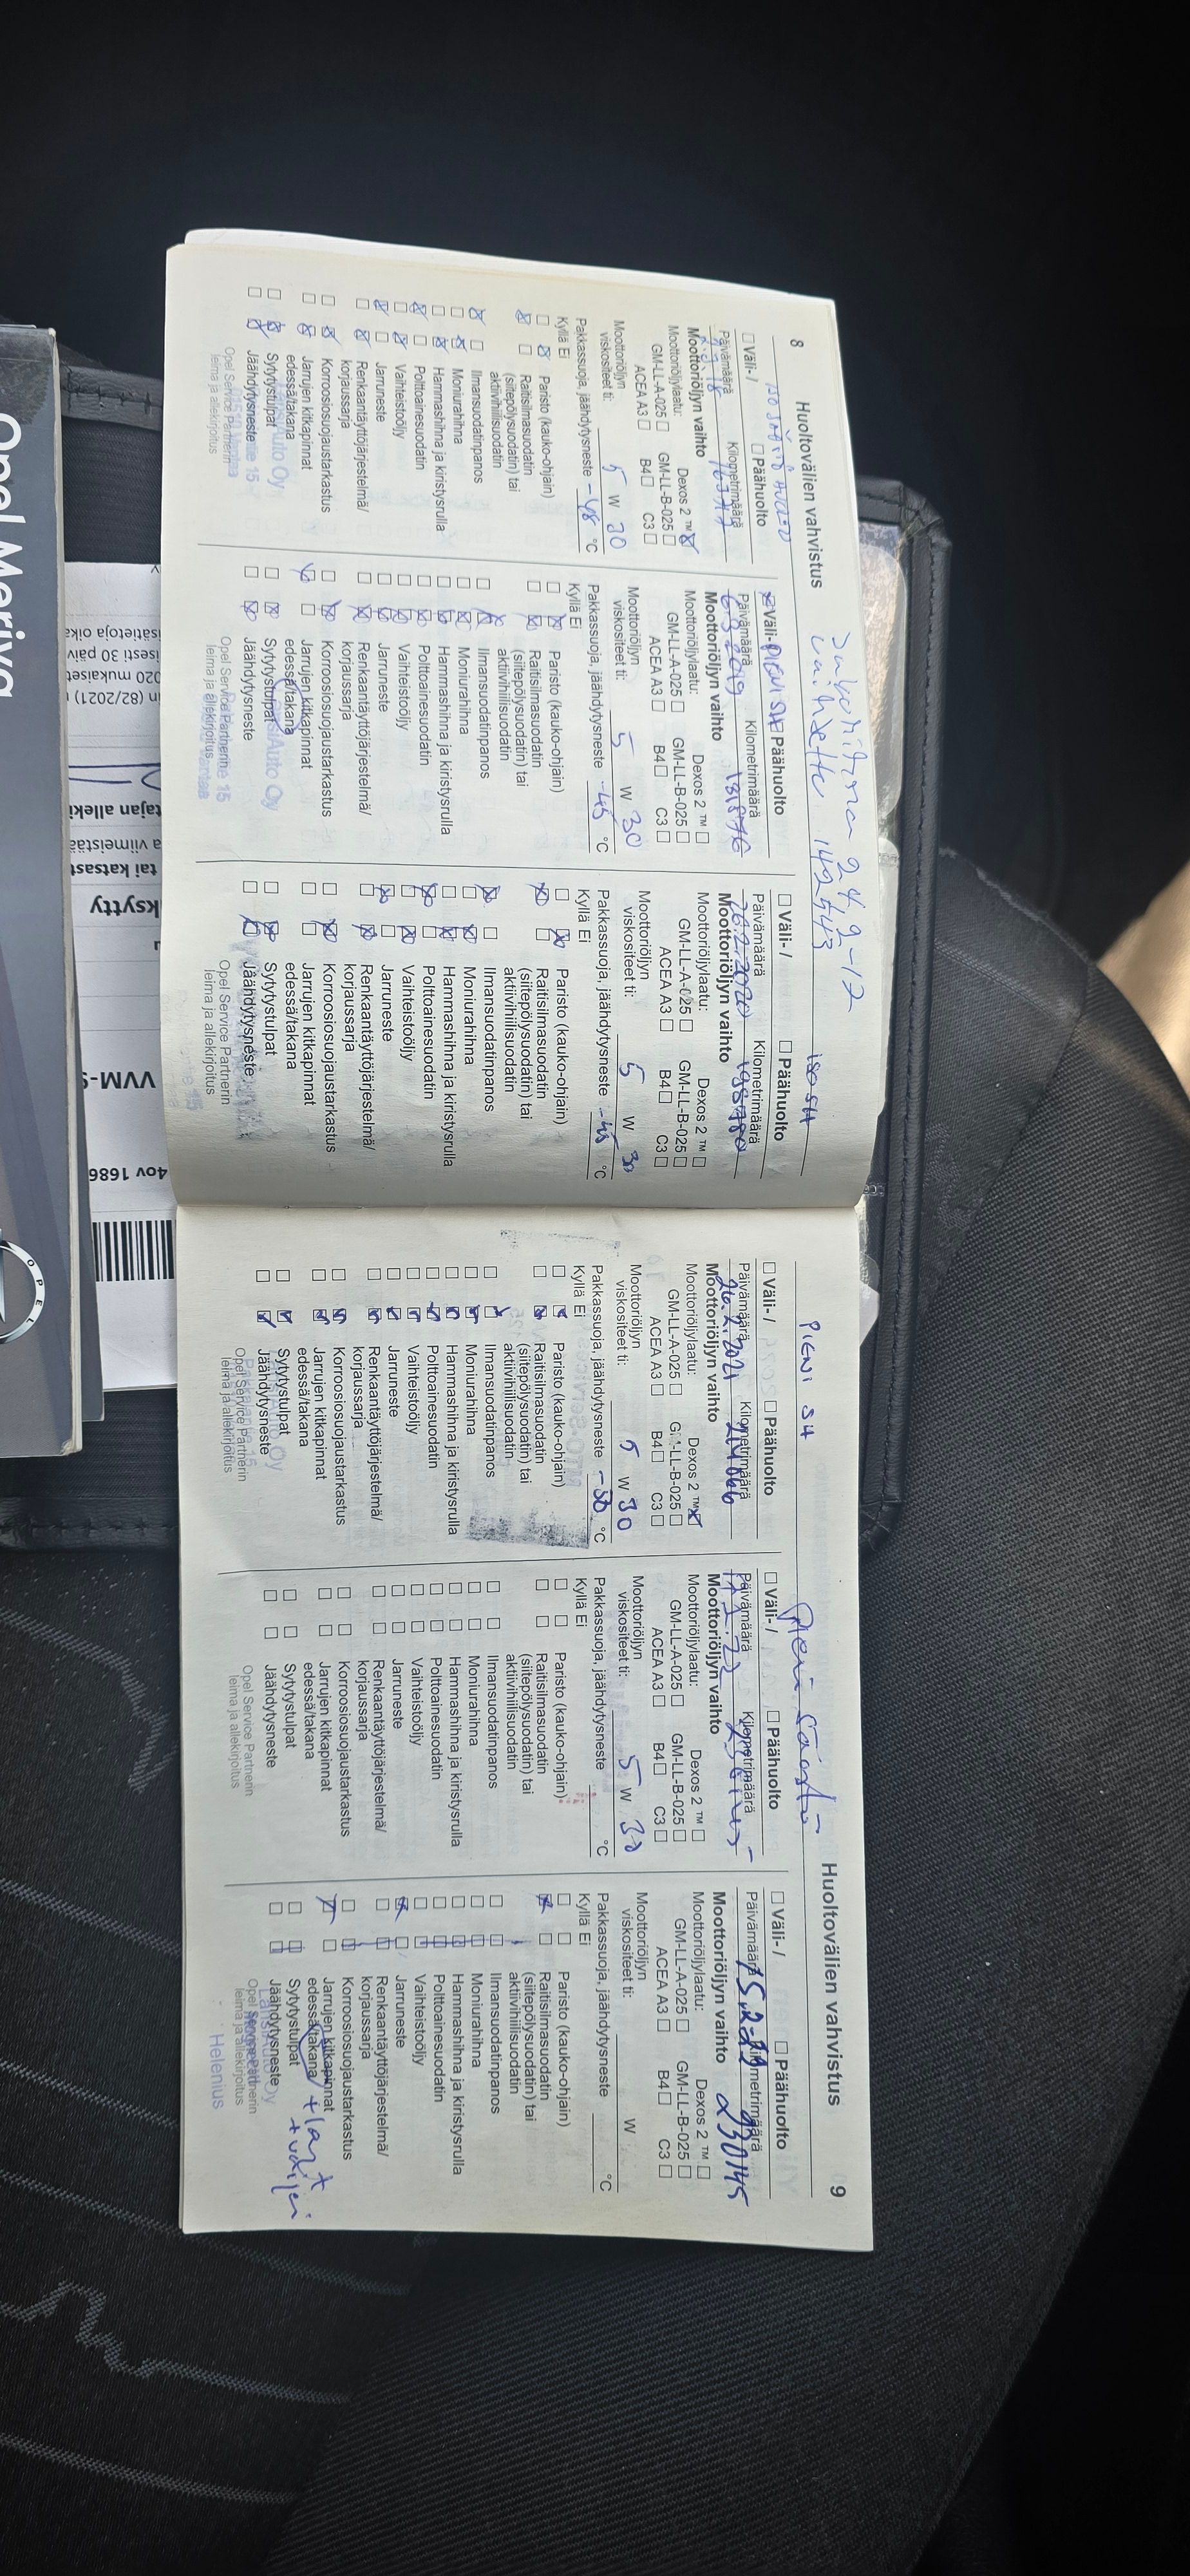 8
Huoltovälien vahvistus
Jakohihna 24.9-17
vaihdettu 142543
Väli- / Päähuolto
Päivämäärä Kilometrimäärä
Moottoriöljyn vaihto
Moottoriöljylaatu: Dexos 2 ™
GM-LL-A-025 GM-LL-B-025
ACEA A3 B4 C3
Moottoriöljyn
viskositeetti: 5 W 30
Pakkassuoja, jäähdytysneste -48 °C
Kyllä Ei
Paristo (kauko-ohjain)
Raitisilmasuodatin
(siitepölysuodatin) tai
aktiivihiilisuodatin
Ilmansuodatinpanos
Moniurahihna
Hammashihna ja kiristysrulla
Polttoainesuodatin
Vaihteistoöljy
Jarruneste
Renkaantäyttöjärjestelmä/
korjaussarja
Korroosiosuojaustarkastus
Jarrujen kitkapinnat
edessä/takana
Sytytystulpat
Jäähdytysneste
Opel Service Partnerin
leima ja allekirjoitus
Väli- / PIENI SH Päähuolto
Päivämäärä Kilometrimäärä
Moottoriöljyn vaihto
Moottoriöljylaatu: Dexos 2 ™
GM-LL-A-025 GM-LL-B-025
ACEA A3 B4 C3
Moottoriöljyn
viskositeetti: 5 W 30
Pakkassuoja, jäähdytysneste -45 °C
Kyllä Ei
Paristo (kauko-ohjain)
Raitisilmasuodatin
(siitepölysuodatin) tai
aktiivihiilisuodatin
Ilmansuodatinpanos
Moniurahihna
Hammashihna ja kiristysrulla
Polttoainesuodatin
Vaihteistoöljy
Jarruneste
Renkaantäyttöjärjestelmä/
korjaussarja
Korroosiosuojaustarkastus
Jarrujen kitkapinnat
edessä/takana
Sytytystulpat
Jäähdytysneste
Opel Service Partnerin
leima ja allekirjoitus
ISO SH
Väli- / Päähuolto
Päivämäärä Kilometrimäärä
26.2.2020 198780
Moottoriöljyn vaihto
Moottoriöljylaatu: Dexos 2 ™
GM-LL-A-025 GM-LL-B-025
ACEA A3 B4 C3
Moottoriöljyn
viskositeetti: 5 W 30
Pakkassuoja, jäähdytysneste -45 °C
Kyllä Ei
Paristo (kauko-ohjain)
Raitisilmasuodatin
(siitepölysuodatin) tai
aktiivihiilisuodatin
Ilmansuodatinpanos
Moniurahihna
Hammashihna ja kiristysrulla
Polttoainesuodatin
Vaihteistoöljy
Jarruneste
Renkaantäyttöjärjestelmä/
korjaussarja
Korroosiosuojaustarkastus
Jarrujen kitkapinnat
edessä/takana
Sytytystulpat
Jäähdytysneste
Opel Service Partnerin
leima ja allekirjoitus
Huoltovälien vahvistus
9
PIENI SH
Väli- / Päähuolto
Päivämäärä Kilometrimäärä
26.2.2021
Moottoriöljyn vaihto
Moottoriöljylaatu: Dexos 2 ™
GM-LL-A-025 GM-LL-B-025
ACEA A3 B4 C3
Moottoriöljyn
viskositeetti: 5 W 30
Pakkassuoja, jäähdytysneste °C
Kyllä Ei
Paristo (kauko-ohjain)
Raitisilmasuodatin
(siitepölysuodatin) tai
aktiivihiilisuodatin
Ilmansuodatinpanos
Moniurahihna
Hammashihna ja kiristysrulla
Polttoainesuodatin
Vaihteistoöljy
Jarruneste
Renkaantäyttöjärjestelmä/
korjaussarja
Korroosiosuojaustarkastus
Jarrujen kitkapinnat
edessä/takana
Sytytystulpat
Jäähdytysneste
Opel Service Partnerin
leima ja allekirjoitus
Pieni
Väli- / Päähuolto
Päivämäärä Kilometrimäärä
Moottoriöljyn vaihto
Moottoriöljylaatu: Dexos 2 ™
GM-LL-A-025 GM-LL-B-025
ACEA A3 B4 C3
Moottoriöljyn
viskositeetti: 5 W 30
Pakkassuoja, jäähdytysneste °C
Kyllä Ei
Paristo (kauko-ohjain)
Raitisilmasuodatin
(siitepölysuodatin) tai
aktiivihiilisuodatin
Ilmansuodatinpanos
Moniurahihna
Hammashihna ja kiristysrulla
Polttoainesuodatin
Vaihteistoöljy
Jarruneste
Renkaantäyttöjärjestelmä/
korjaussarja
Korroosiosuojaustarkastus
Jarrujen kitkapinnat
edessä/takana
Sytytystulpat
Jäähdytysneste
Opel Service Partnerin
leima ja allekirjoitus
Väli- / Päähuolto
Päivämäärä Kilometrimäärä
230145
Moottoriöljyn vaihto
Moottoriöljylaatu: Dexos 2 ™
GM-LL-A-025 GM-LL-B-025
ACEA A3 B4 C3
Moottoriöljyn
viskositeetti: W
Pakkassuoja, jäähdytysneste °C
Kyllä Ei
Paristo (kauko-ohjain)
Raitisilmasuodatin
(siitepölysuodatin) tai
aktiivihiilisuodatin
Ilmansuodatinpanos
Moniurahihna
Hammashihna ja kiristysrulla
Polttoainesuodatin
Vaihteistoöljy
Jarruneste
Renkaantäyttöjärjestelmä/
korjaussarja
Korroosiosuojaustarkastus
Jarrujen kitkapinnat
edessä/takana
Sytytystulpat
Jäähdytysneste
Opel Service Partnerin
leima ja allekirjoitus
Helenius
Opel Meriva
OPEL
VVM-S
4ov 1686
ksytty
tai katsast
a viimeistää
tajan alleki
in (82/2021)
020 mukaiset
isesti 30 päiv
isätietoja oika